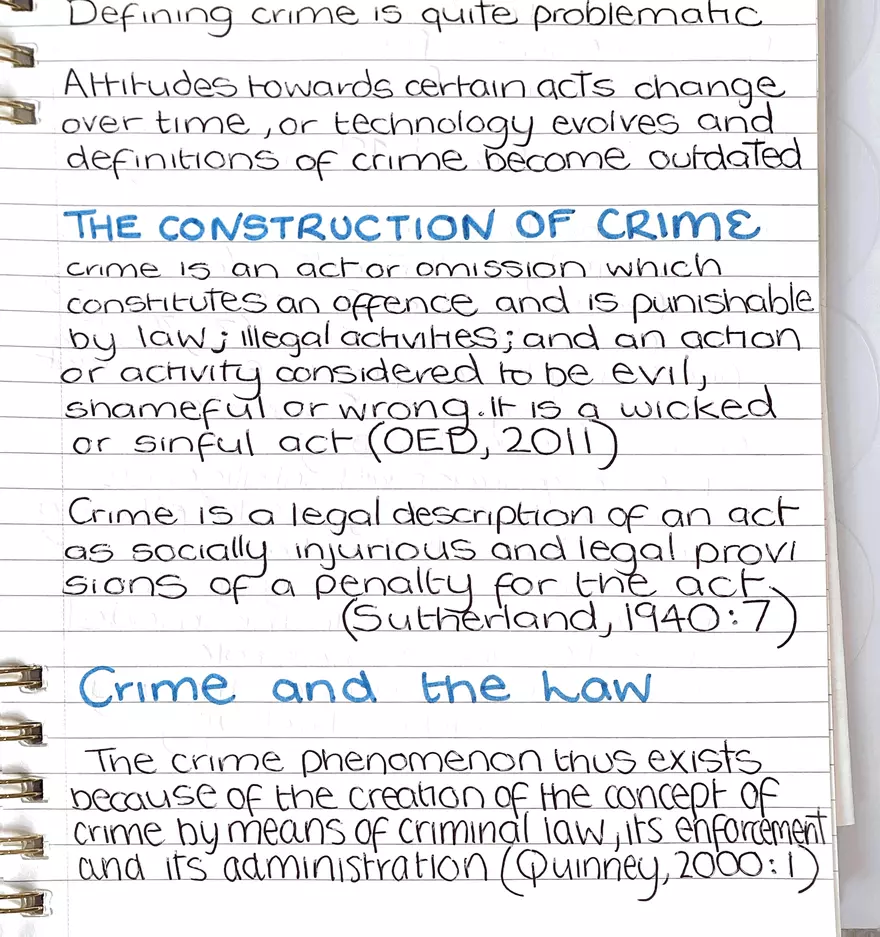 Defining crime is quite problematic
Attitudes towards certain acts change
over time, or technology evolves and
definitions of crime become outdated
THE CONSTRUCTION OF CRIME
crime is an act or omission which
constitutes an offence and is punishable
by law; illegal activities; and an action
or activity considered to be evil,
shameful or wrong. It is a wicked
or sinful act (OED, 2011)
Crime is a legal description of an act
as socially injurious and legal provi
sions of a penalty for the act.
(Sutherland, 1940:7)
Crime and the Law
The crime phenomenon thus exists
because of the creation of the concept of
crime by means of criminal law, its enforcement
and its administration (Quinney, 2000:1)